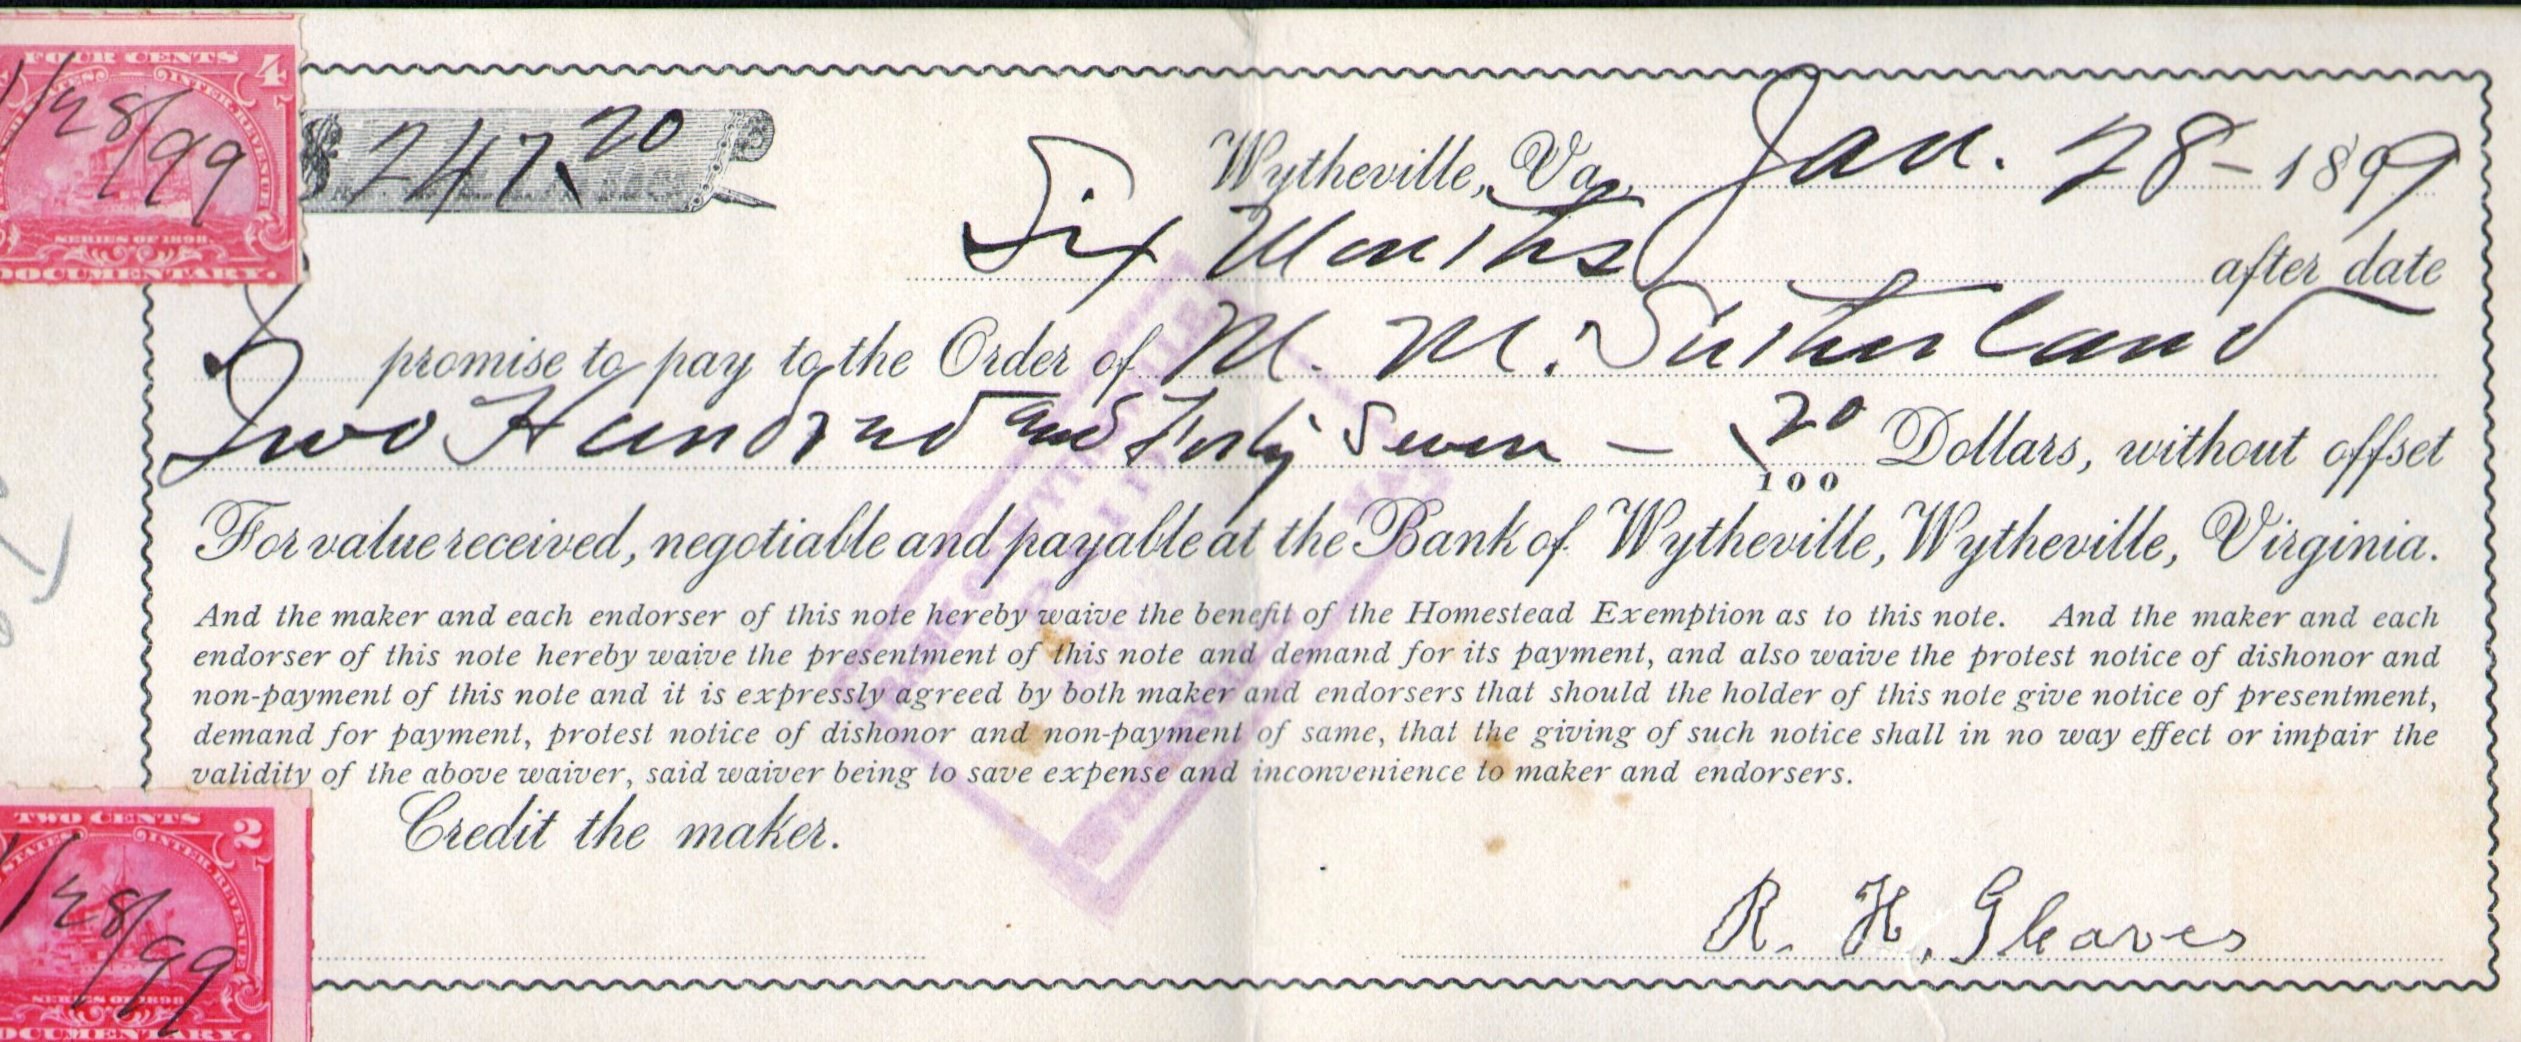 FOUR CENTS 4
STATES INTER. REVENUE
1/28/99
SERIES OF 1898.
DOCUMENTARY.
$ 247.20
Wytheville, Va., Jan. 28 - 1899
Six Months after date
I promise to pay to the Order of M. M. Sutherland
Two Hundred and Forty Seven — 20/100 Dollars, without offset
For value received, negotiable and payable at the Bank of Wytheville, Wytheville, Virginia.
And the maker and each endorser of this note hereby waive the benefit of the Homestead Exemption as to this note. And the maker and each
endorser of this note hereby waive the presentment of this note and demand for its payment, and also waive the protest notice of dishonor and
non-payment of this note and it is expressly agreed by both maker and endorsers that should the holder of this note give notice of presentment,
demand for payment, protest notice of dishonor and non-payment of same, that the giving of such notice shall in no way effect or impair the
validity of the above waiver, said waiver being to save expense and inconvenience to maker and endorsers.
Credit the maker.
R. H. Gleaves
TWO CENTS 2
STATES INTER. REVENUE
1/28/99
SERIES OF 1898
DOCUMENTARY.
BANK OF WYTHEVILLE
PAID